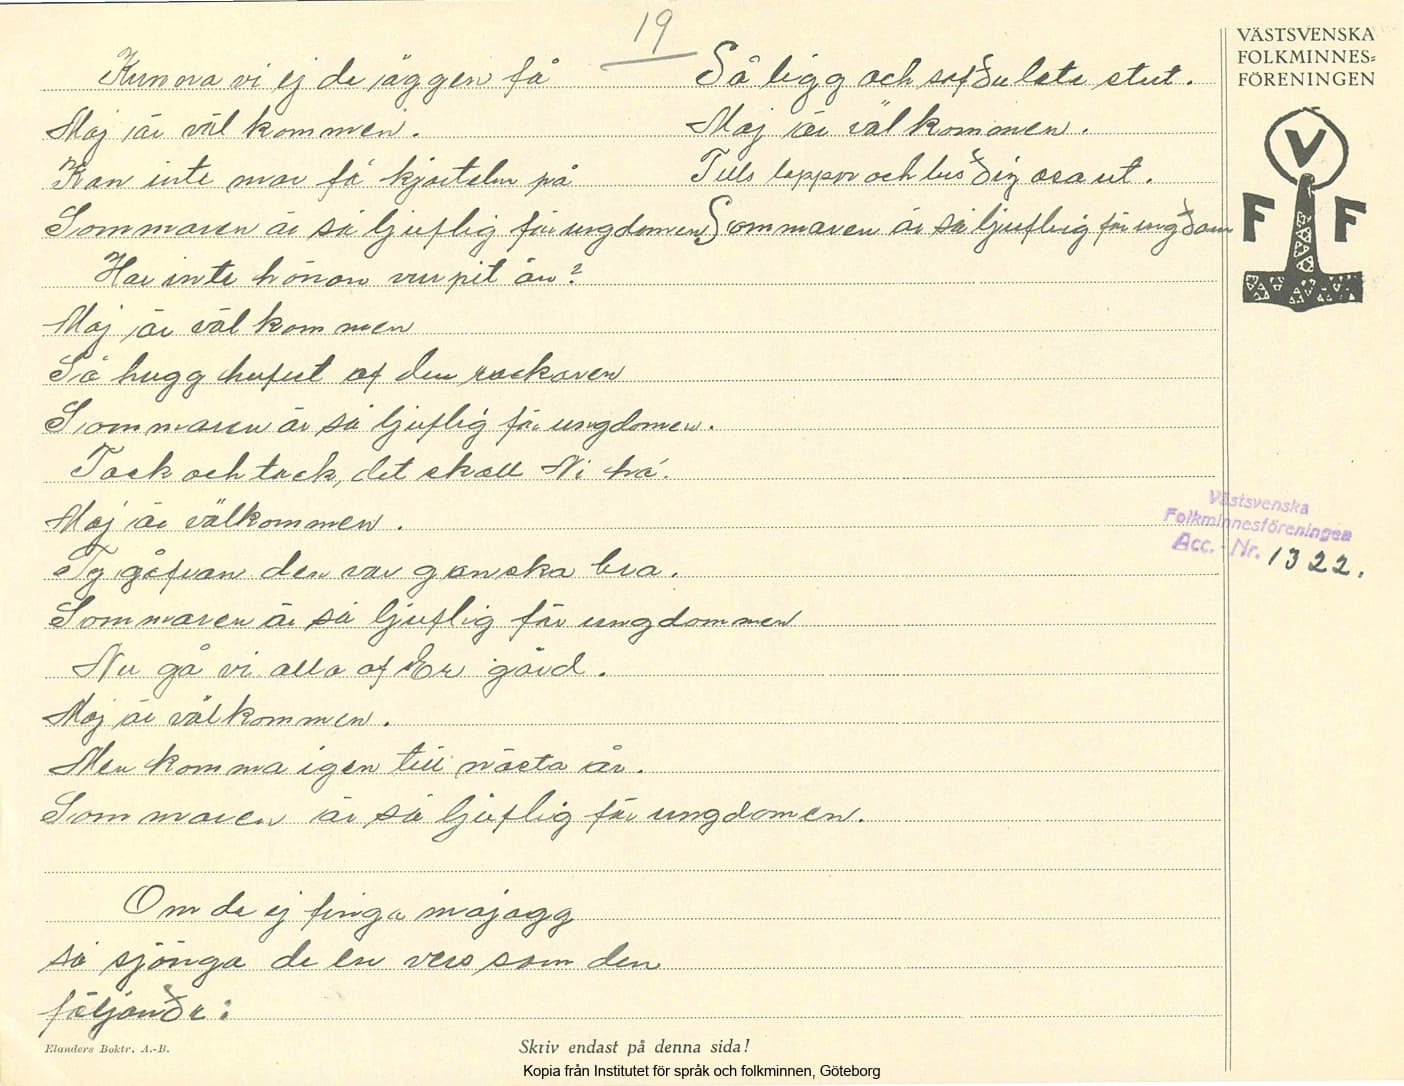 19
Kunna vi ej de äggen få
Maj är välkommen.
Kan inte mor få kjortelen på
Sommaren är så ljuflig för ungdomen
Har inte hönan vurpit än?
Maj är välkommen
Så hugg hufvut af den rackaren
Sommaren är så ljuflig för ungdomen.
Tack och tack, det skall Ni ha.
Maj är välkommen.
Ty gåfvan den var ganska bra.
Sommaren är så ljuflig för ungdommen
Nu gå vi alla af Er gård.
Maj är välkommen.
Men komma igen till nästa år.
Sommaren är så ljuflig för ungdomen.
Om de ej finga majagg
så sjönga de en vers som den
följande:
Så ligg och sof du late stut.
Maj är välkommen.
Tills loppor och lus dig ut.
Sommaren är så ljuflig för ungdom
VÄSTSVENSKA
FOLKMINNES=
FÖRENINGEN
V
F F
Västsvenska
Folkminnesföreningen
Acc.-Nr. 1322.
Elanders Boktr. A.-B.
Skriv endast på denna sida!
Kopia från Institutet för språk och folkminnen, Göteborg